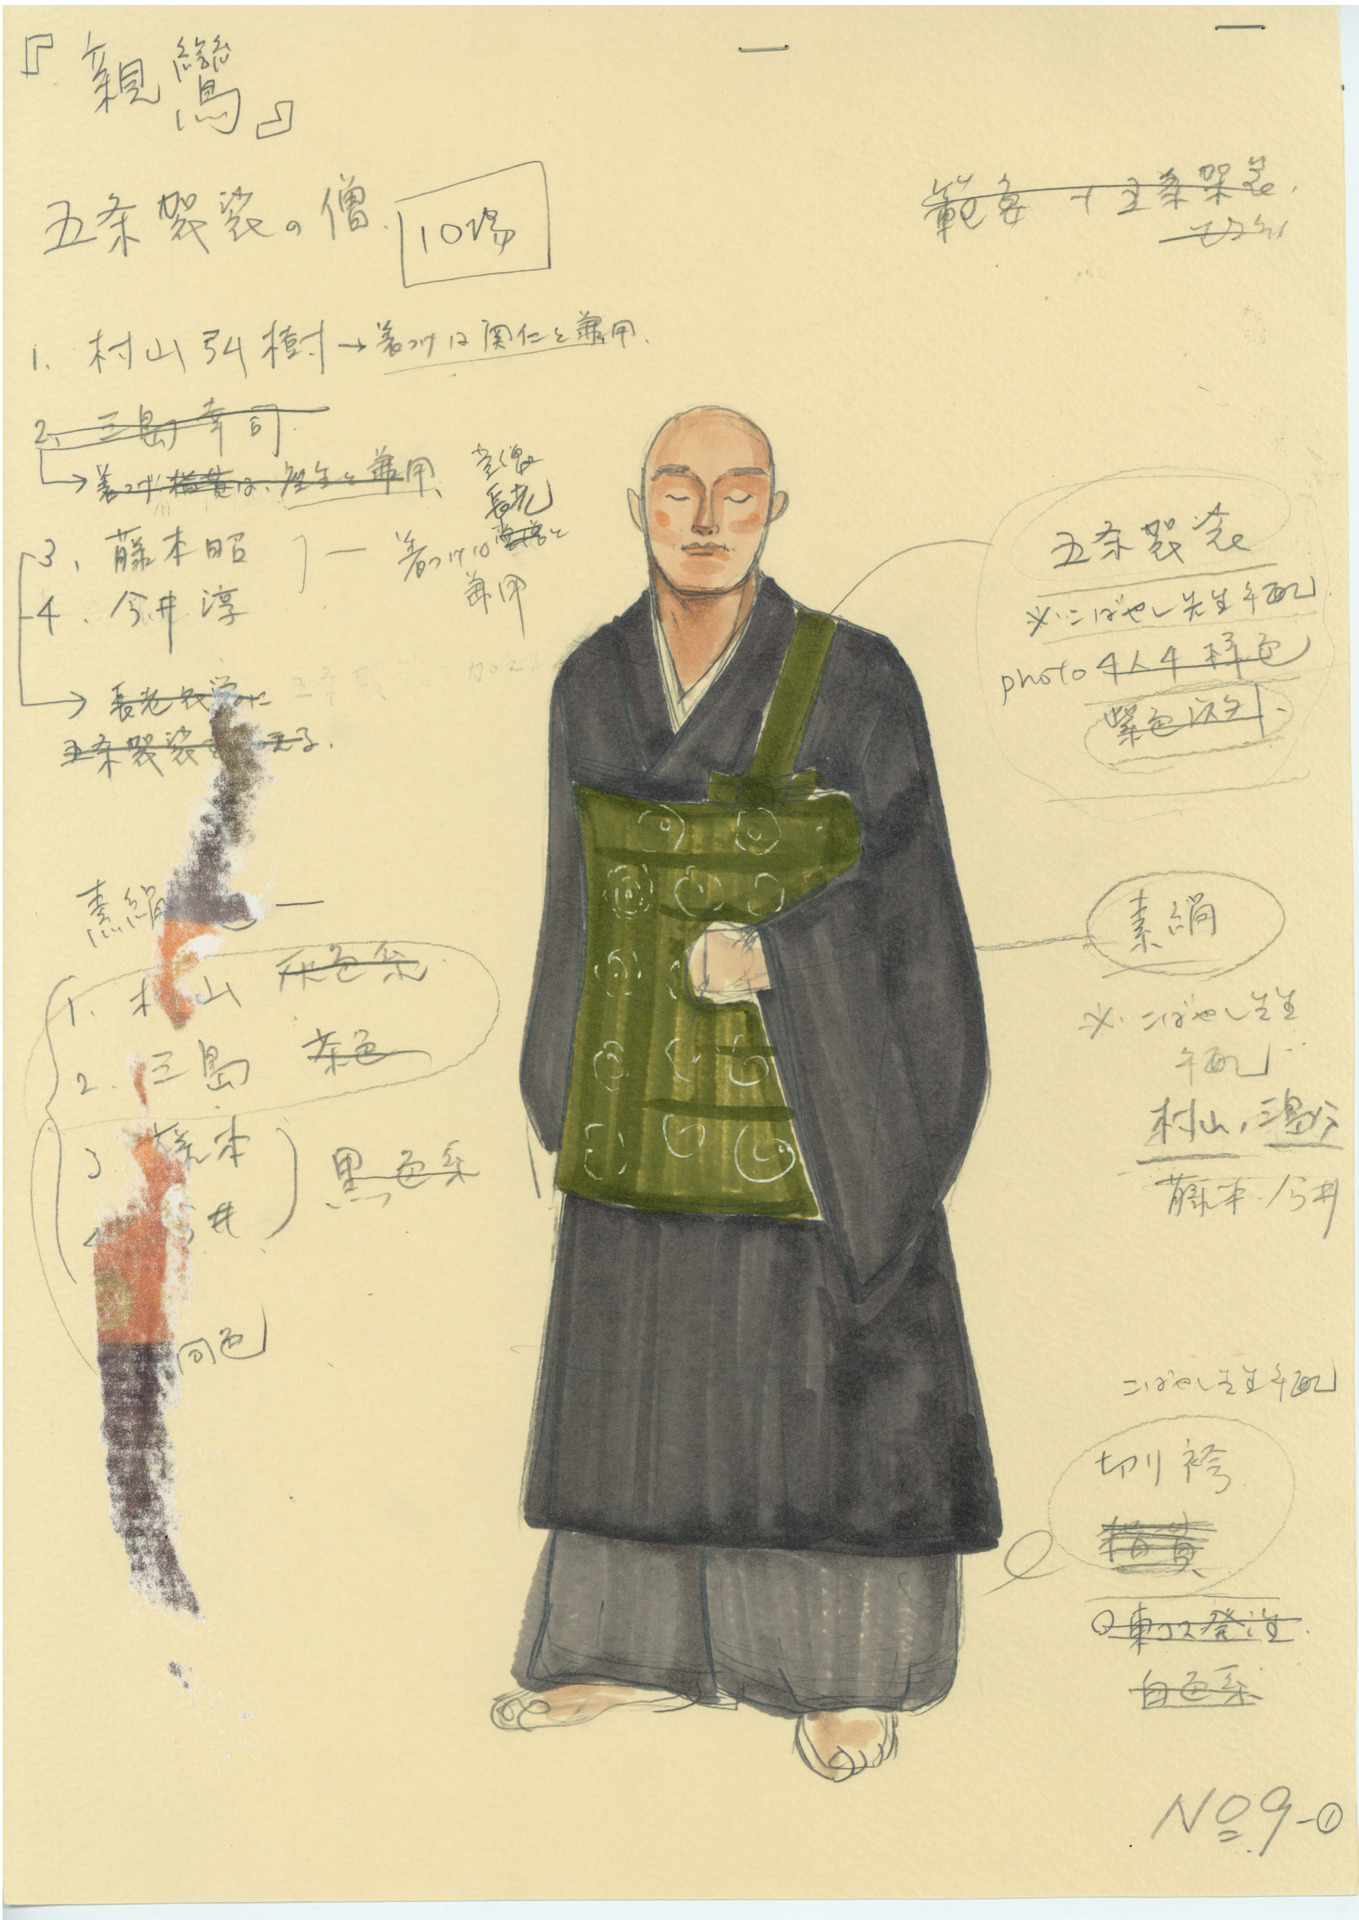 『親鸞』
五条袈裟の僧 10場
範宴
五条袈裟
1. 村山弘樹→着つけは 兼用
2. 三島幸司
着つけ 兼用
3. 藤本昭
4. 今井淳
着つけは
長老
兼用
五条袈裟
五条袈裟
※こばやし先生手配
photo 4人4様色
紫色以外
素絹
1. 村山 灰色系
2. 三島 茶色
3 藤本
井
黒色系
同色
素絹
※こばやし先生
手配
村山、三島分
藤本 今井
こばやし先生手配
切り袴
白色系
No 9-①